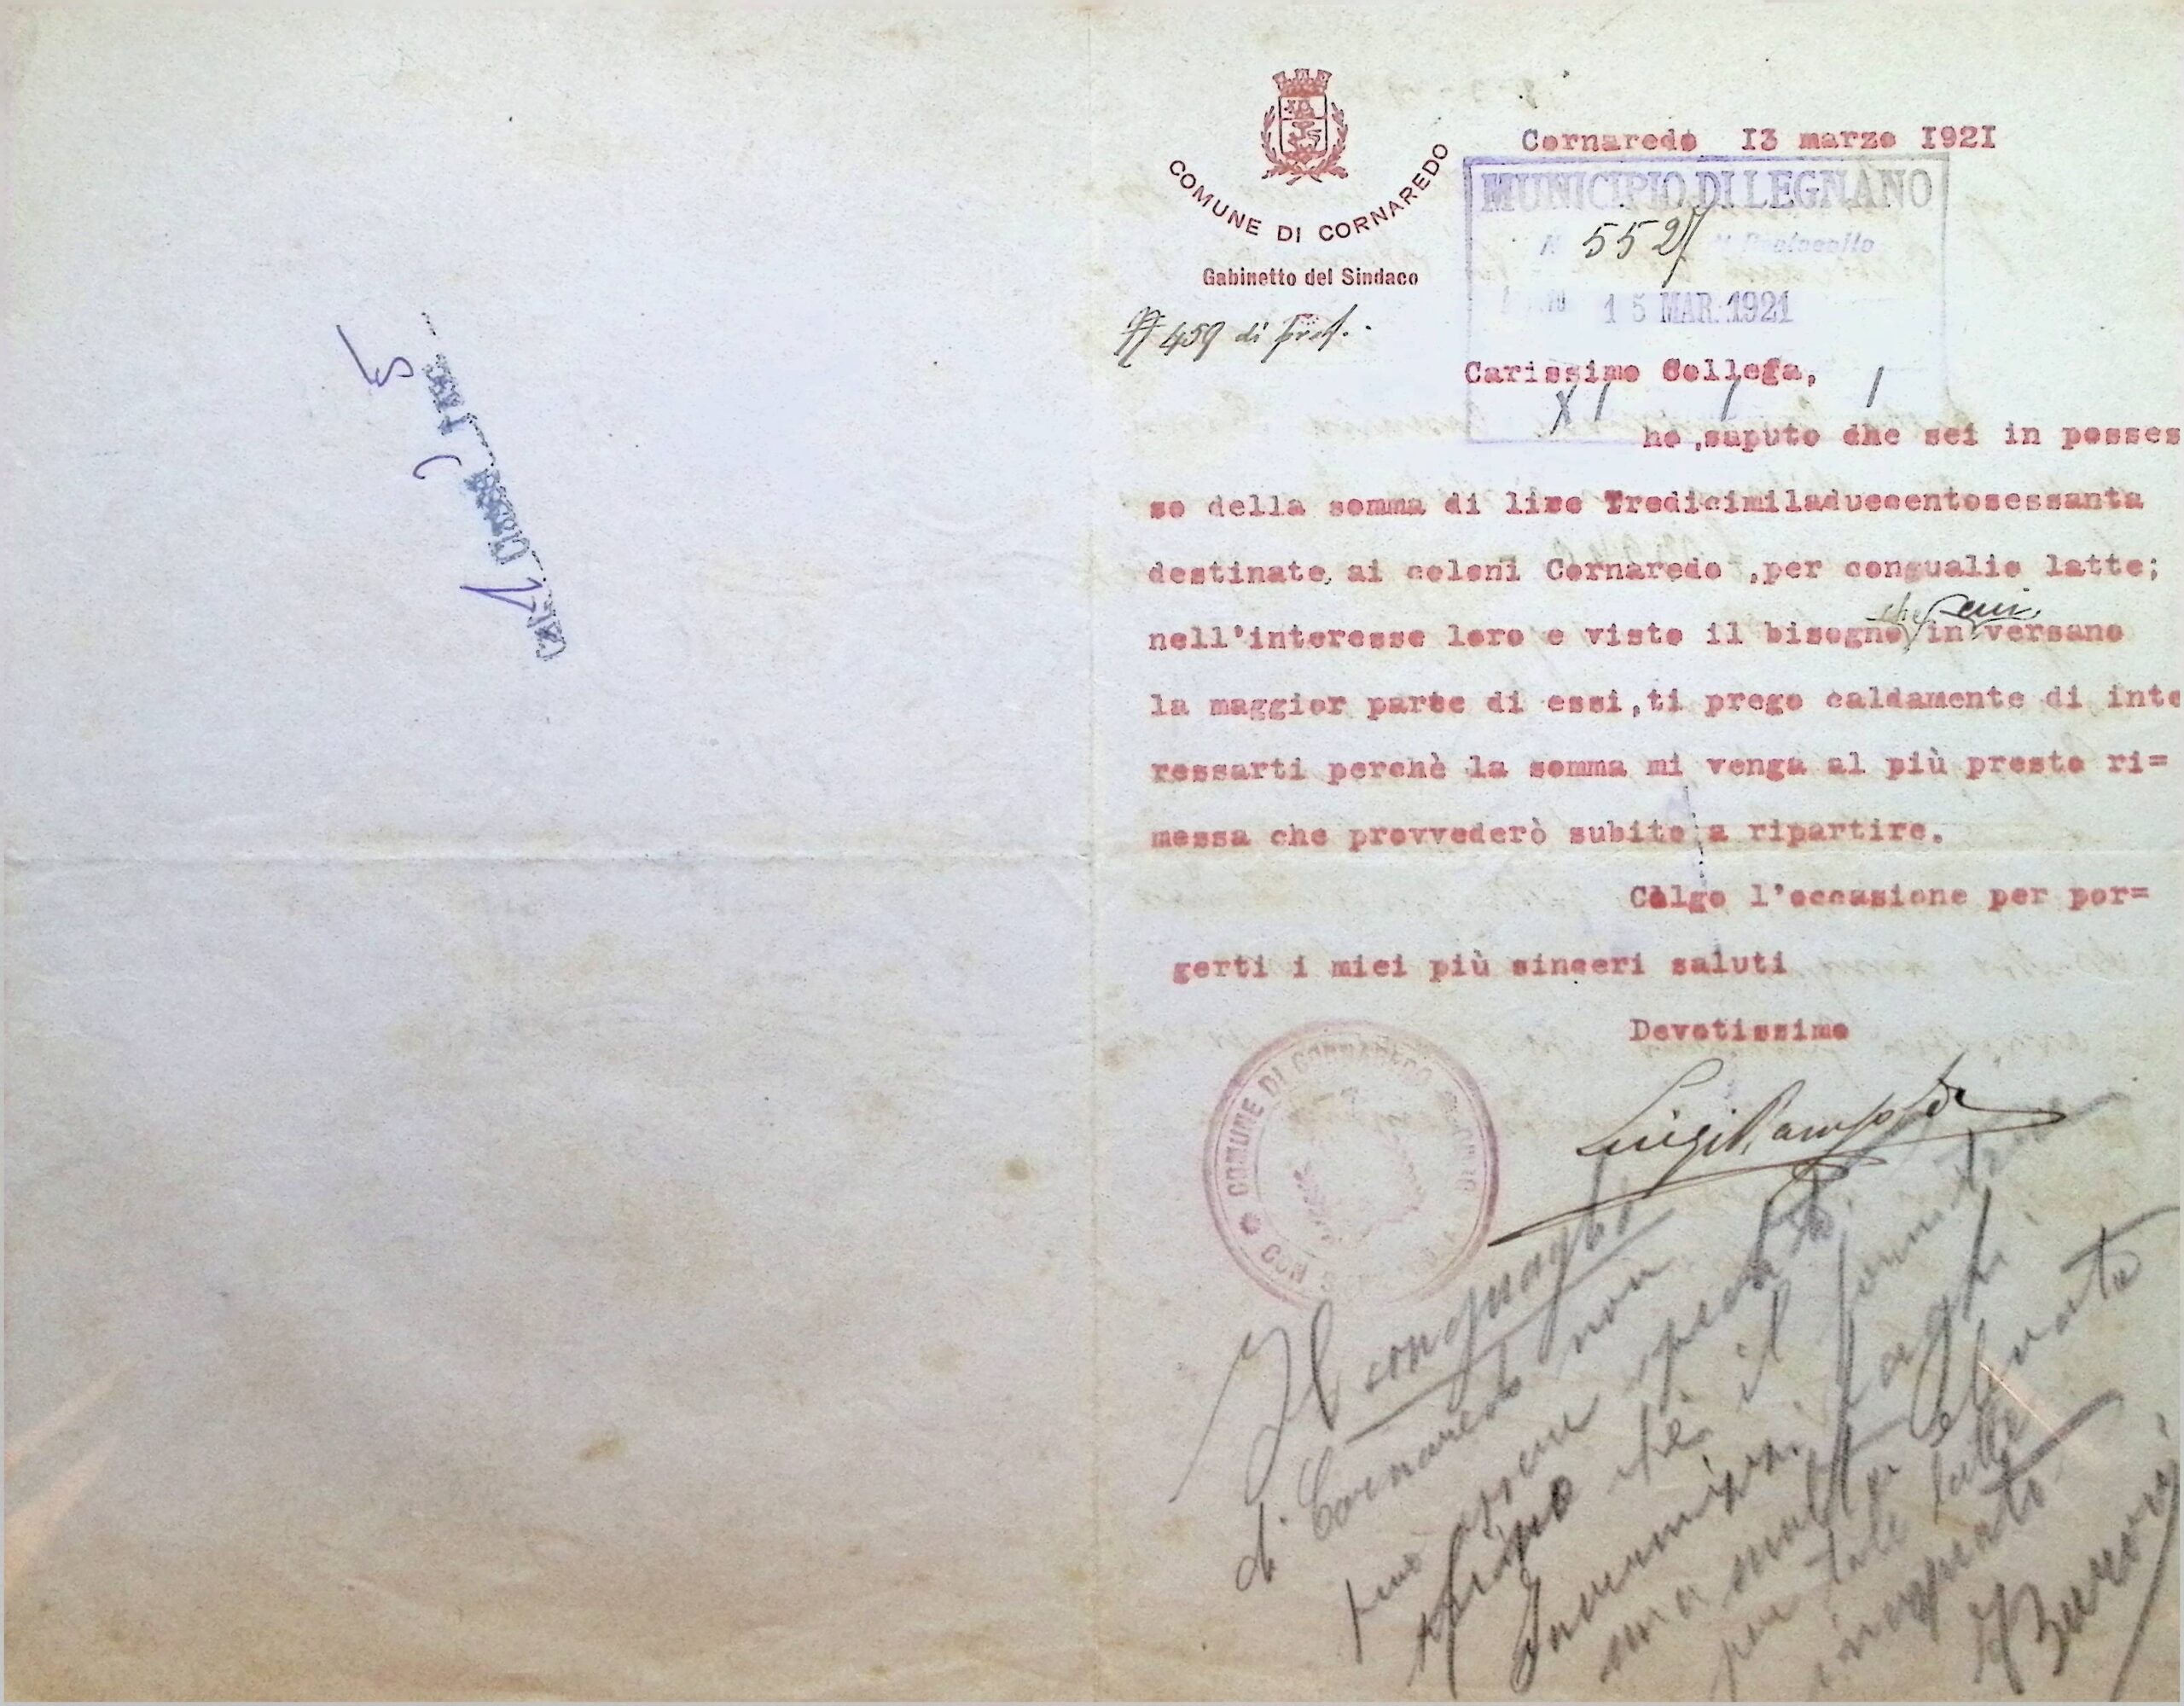 COMUNE DI CORNAREDO
Gabinetto del Sindaco
459 di prot.
Cornaredo 13 marzo 1921
MUNICIPIO DI LEGNANO
N 5527 Protocollo
15 MAR. 1921
Carissimo Collega,
X 1 1 1
ho ,saputo che sei in posses
so della somma di lire Tredicimiladuecentosessanta
destinate ai coloni Cornaredo ,per congualio latte;
nell'interesse loro e visto il bisogno in versano
la maggior parte di essi,ti prego caldamente di inte
ressarti perchè la somma mi venga al più presto ri=
messa che provvederò subito a ripartire.
Colgo l'occasione per por=
gerti i miei più sinceri saluti
Devotissimo
Luigi Rampoldi
COMUNE DI CORNAREDO
Il conguaglio
di Cornaredo non
può essere spedito
prima che il fornitore
paghi
una multa
per tale latte
Cat. 1 Classe Fasc.